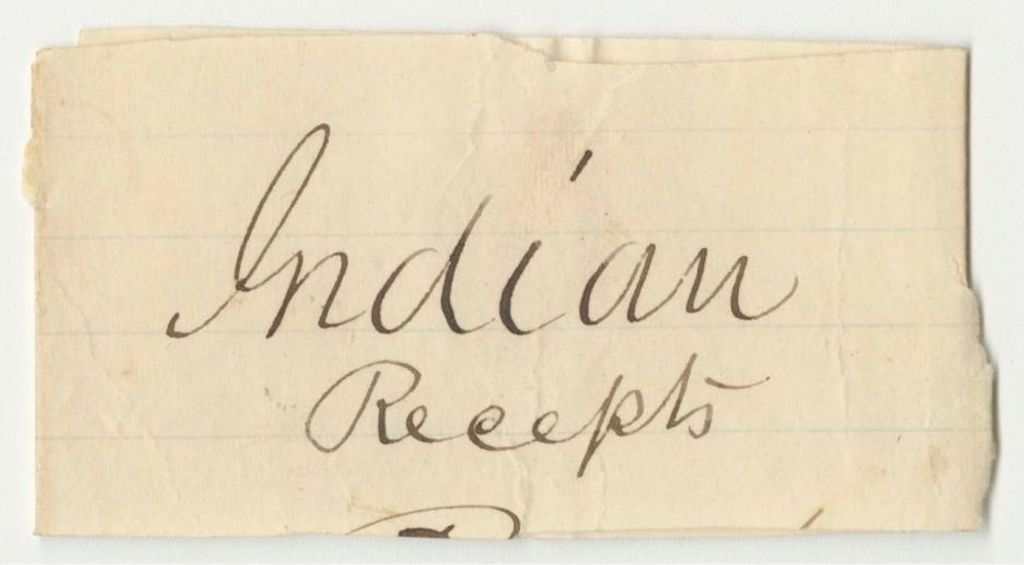 Indian
Recepts